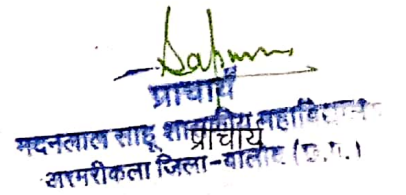 प्राचार्य
मदनलाल साहू शासकीय महाविद्यालय
प्राचार्य
अरमरीकला जिला-बालोद (छ.ग.)